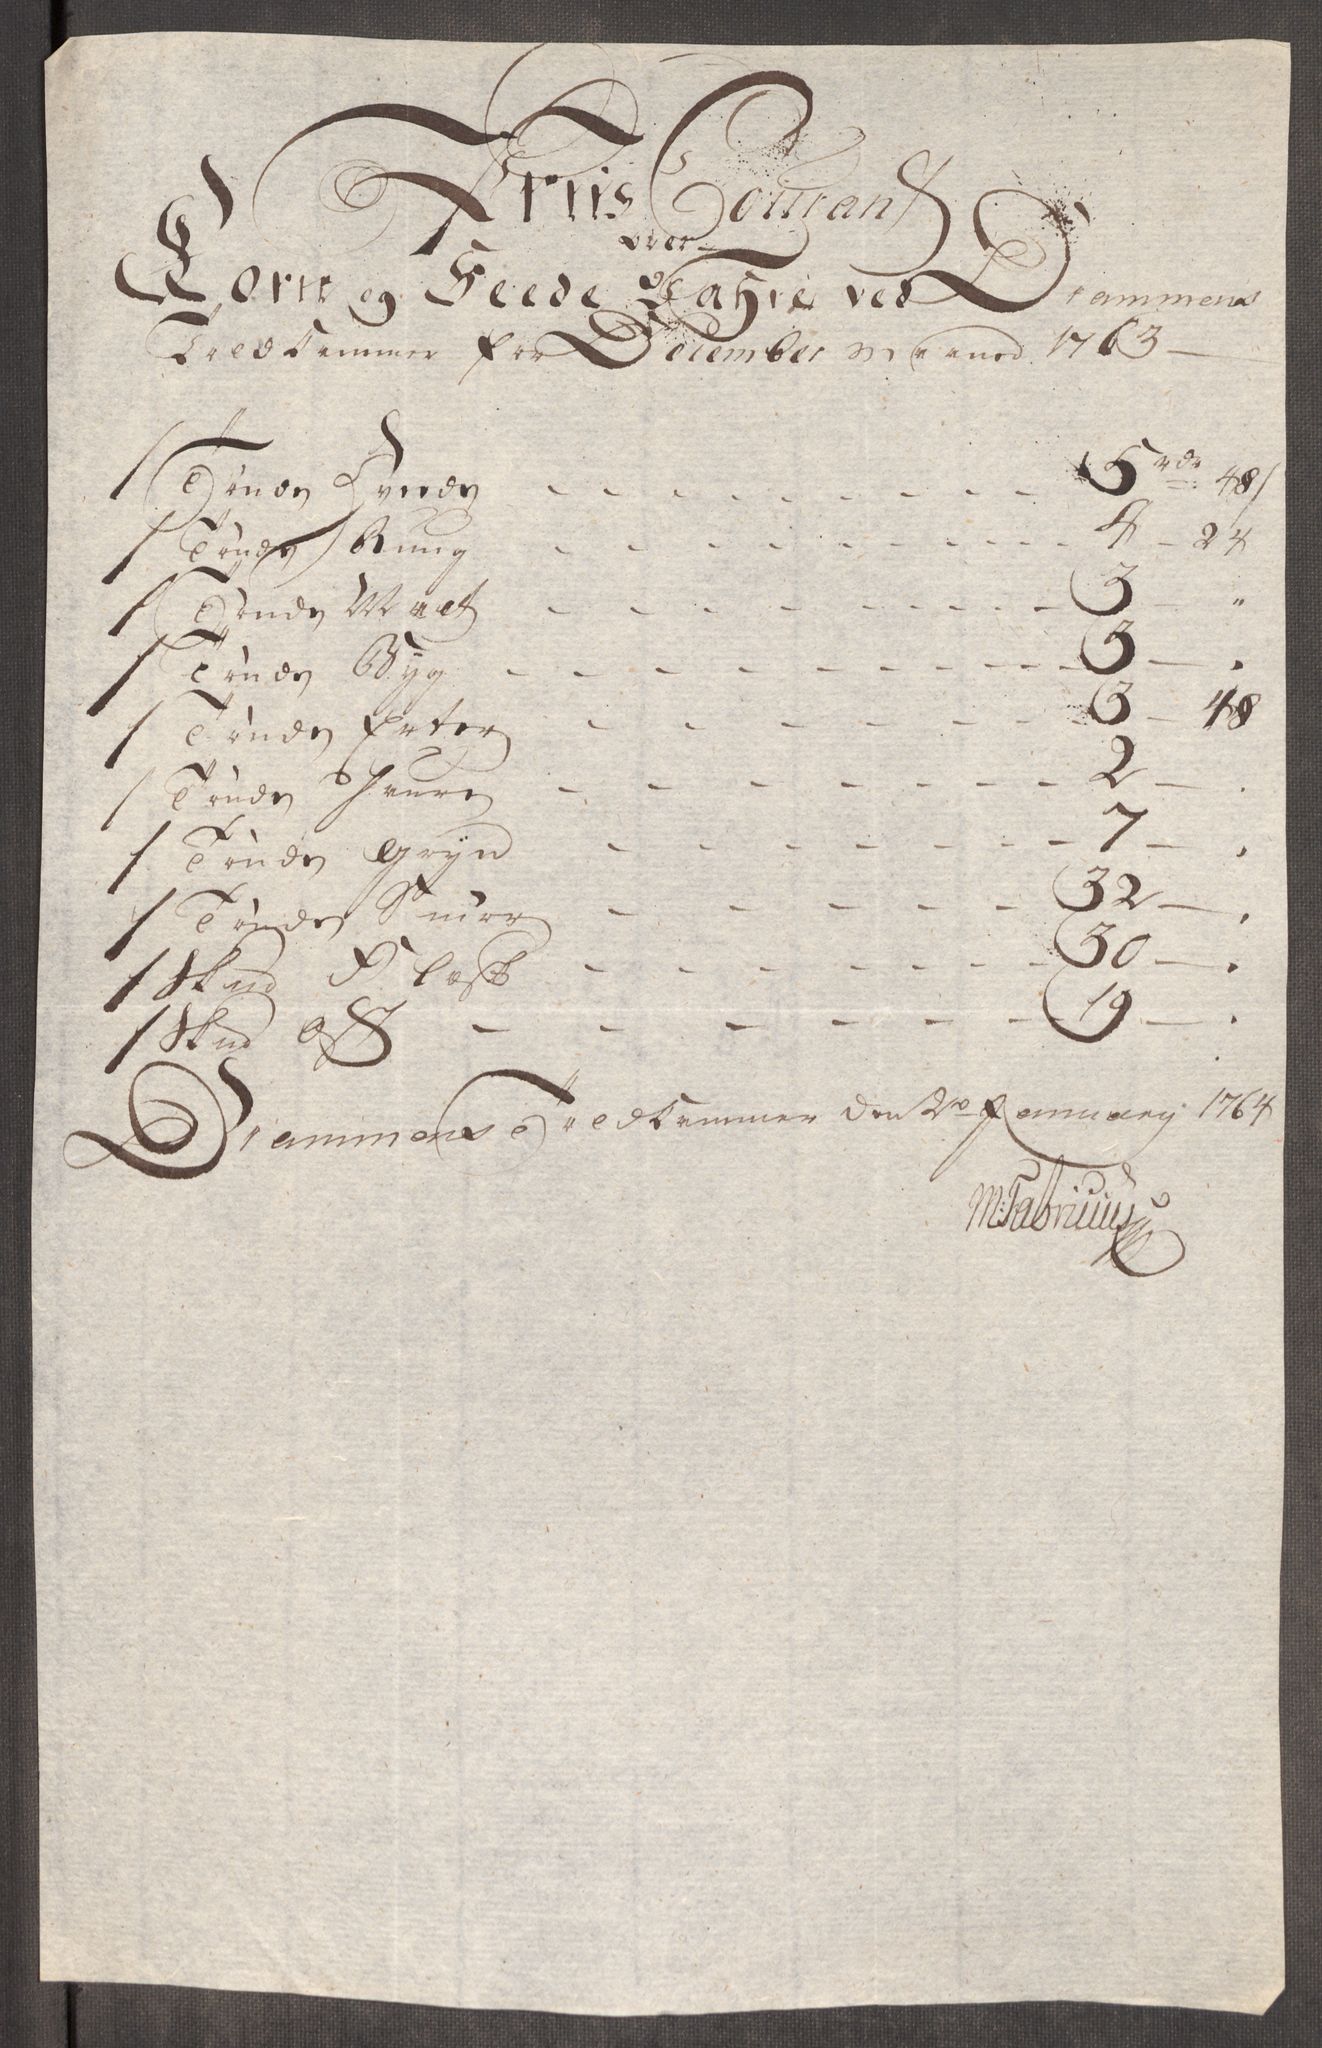 Priis Courant
over
Korn og Feede Wahre ved Drammens
Toldkammer for December Maaned 1763
1 Tønde Hvede 5 rdr 48 s
1 Tønde Rug 4 24
1 Tønde Malt 3 "
1 Tønde Byg 3 .
1 Tønde Erter 3 48
1 Tønde Havre 2 .
1 Tønde Gryn 7 .
1 Tønde Smør 32 .
1 Skpd Flesk 30 .
1 Skpd Ost 19 .
Drammens Toldkammer den 2de January 1764
M: Fabricius